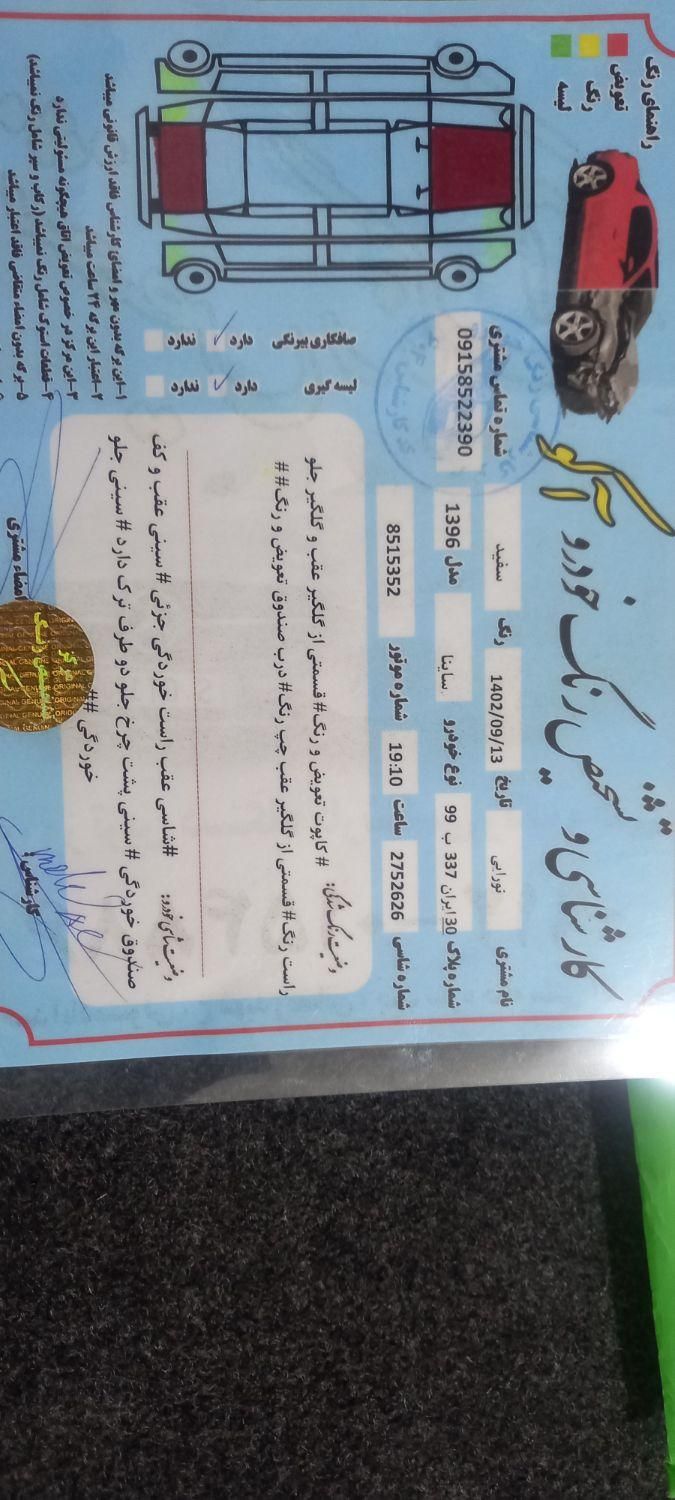 کارشناسی و تشخیص رنگ خودرو آکو
راهنمای رنگ
تعویض
رنگ
لیسه
نام مشتری نورایی تاریخ 1402/09/13 رنگ سفید شماره تماس مشتری
شماره پلاک 30 ایران 337 ب 99 نوع خودرو ساینا مدل 1396 09158522390
شماره شاسی 2752626 ساعت 19:10 شماره موتور 8515352
صافکاری بیرنگی دارد ندارد
لیسه گیری دارد ندارد
وضعیت رنگ شدگی: #کاپوت تعویض و رنگ#قسمتی از گلگیر عقب و گلگیر جلو
راست رنگ#قسمتی از گلگیر عقب چپ رنگ#درب صندوق تعویض و رنگ##
وضعیت شاسی خودرو: #شاسی عقب راست خوردگی جزئی #سینی عقب و کف
صندوق خوردگی #سینی پشت چرخ جلو دو طرف ترک دارد #سینی جلو
خوردگی ##
۱-این برگه بدون مهر و امضای کارشناس فاقد ارزش قانونی میباشد
۲-اعتبار این برگه ۲۴ ساعت میباشد
۳-این مرکز در خصوص تعویض اتاق هیچگونه مسئولیتی ندارد
۴-قطعات استوک شامل رنگ نمیباشد (رکاب و سپر شامل رنگ نمیباشد)
۵-برگه بدون امضاء متقاضی فاقد اعتبار میباشد
کارشناس:
امضاء مشتری
مرکز
ORIGINAL GENUINE